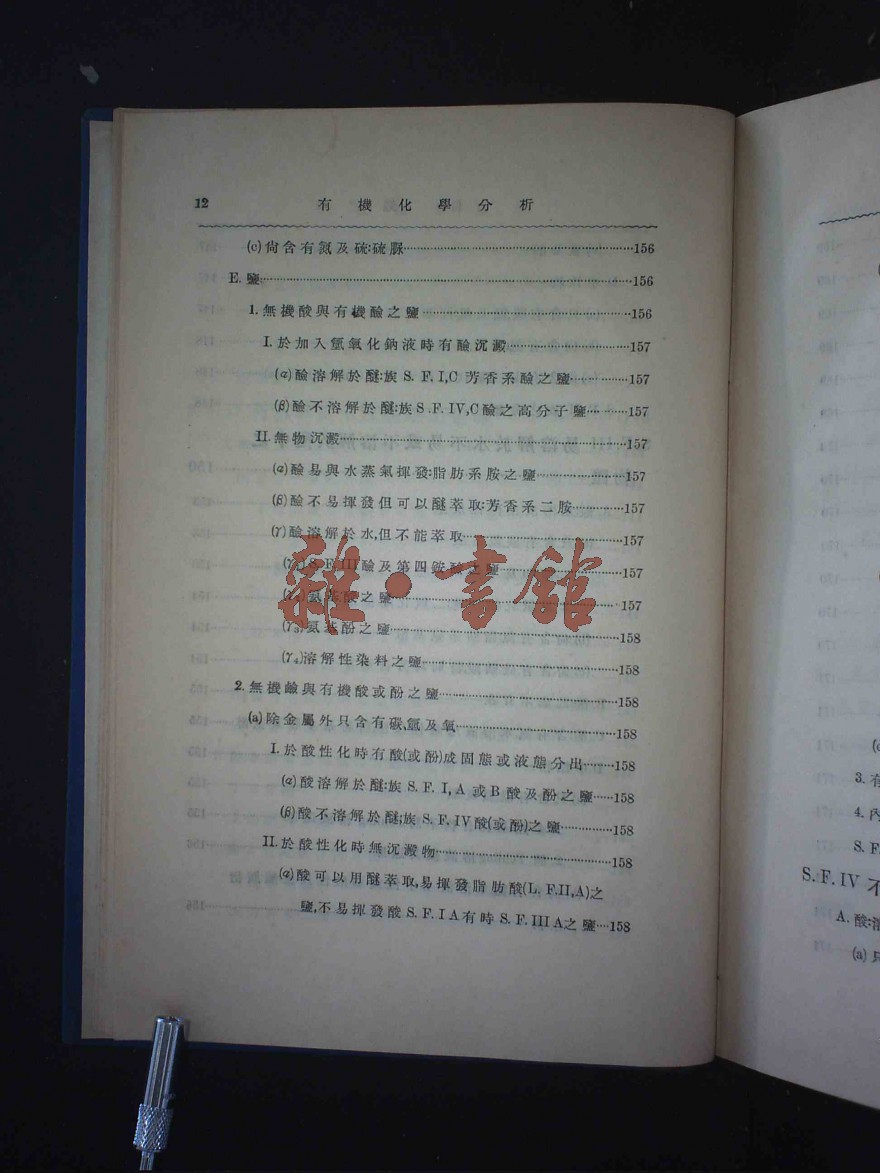 12 有機化學分析
(c)尙含有氮及硫:硫脲……156
E. 鹽……156
1. 無機酸與有機鹼之鹽……156
I. 於加入氫氧化鈉液時有鹼沉澱……157
(α)鹼溶解於醚:族 S. F. I,C 芳香系鹼之鹽……157
(β)鹼不溶解於醚:族 S. F. IV,C 鹼之高分子鹽……157
II. 無物沉澱……157
(α)鹼易與水蒸氣揮發:脂肪系胺之鹽……157
(β)鹼不易揮發但可以醚萃取:芳香系二胺……157
(γ)鹼溶解於水,但不能萃取……157
S. F. III 鹼及第四銨鹼之鹽……157
之鹽……157
(γ₃)氨基酚之鹽……158
(γ₄)溶解性染料之鹽……158
2. 無機鹼與有機酸或酚之鹽……158
(a)除金屬外只含有碳,氫及氧……158
I. 於酸性化時有酸(或酚)成固態或液態分出……158
(α)酸溶解於醚:族 S. F. I, A 或 B 酸及酚之鹽……158
(β)酸不溶解於醚;族 S. F. IV 酸(或酚)之鹽……158
II. 於酸性化時無沉澱物……158
(α)酸可以用醚萃取,易揮發脂肪酸(L. F. II, A)之
鹽,不易揮發酸 S. F. I A 有時 S. F. III A 之鹽……158
雜·書館
3. 有
4. 內
S. F.
S. F. IV 不
A. 酸:溶
(a) 只